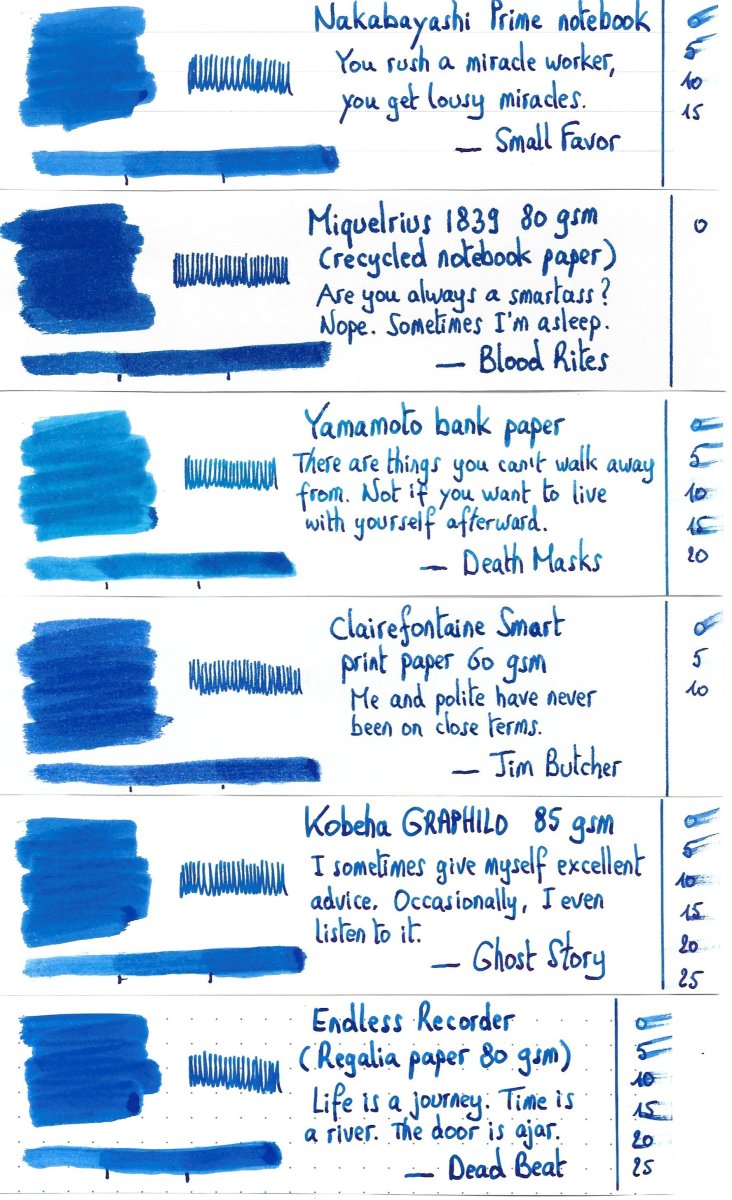 Nakabayashi Prime notebook
You rush a miracle worker,
you get lousy miracles.
— Small Favor
0
5
10
15
Miquelrius 1839 80 gsm
(recycled notebook paper)
Are you always a smartass?
Nope. Sometimes I'm asleep.
— Blood Rites
0
Yamamoto bank paper
There are things you can't walk away
from. Not if you want to live
with yourself afterward.
— Death Masks
0
5
10
15
20
Clairefontaine Smart
print paper 60 gsm
Me and polite have never
been on close terms.
— Jim Butcher
0
5
10
Kobeha GRAPHILO 85 gsm
I sometimes give myself excellent
advice. Occasionally, I even
listen to it.
— Ghost Story
0
5
10
15
20
25
Endless Recorder
(Regalia paper 80 gsm)
Life is a journey. Time is
a river. The door is ajar.
— Dead Beat
0
5
10
15
20
25